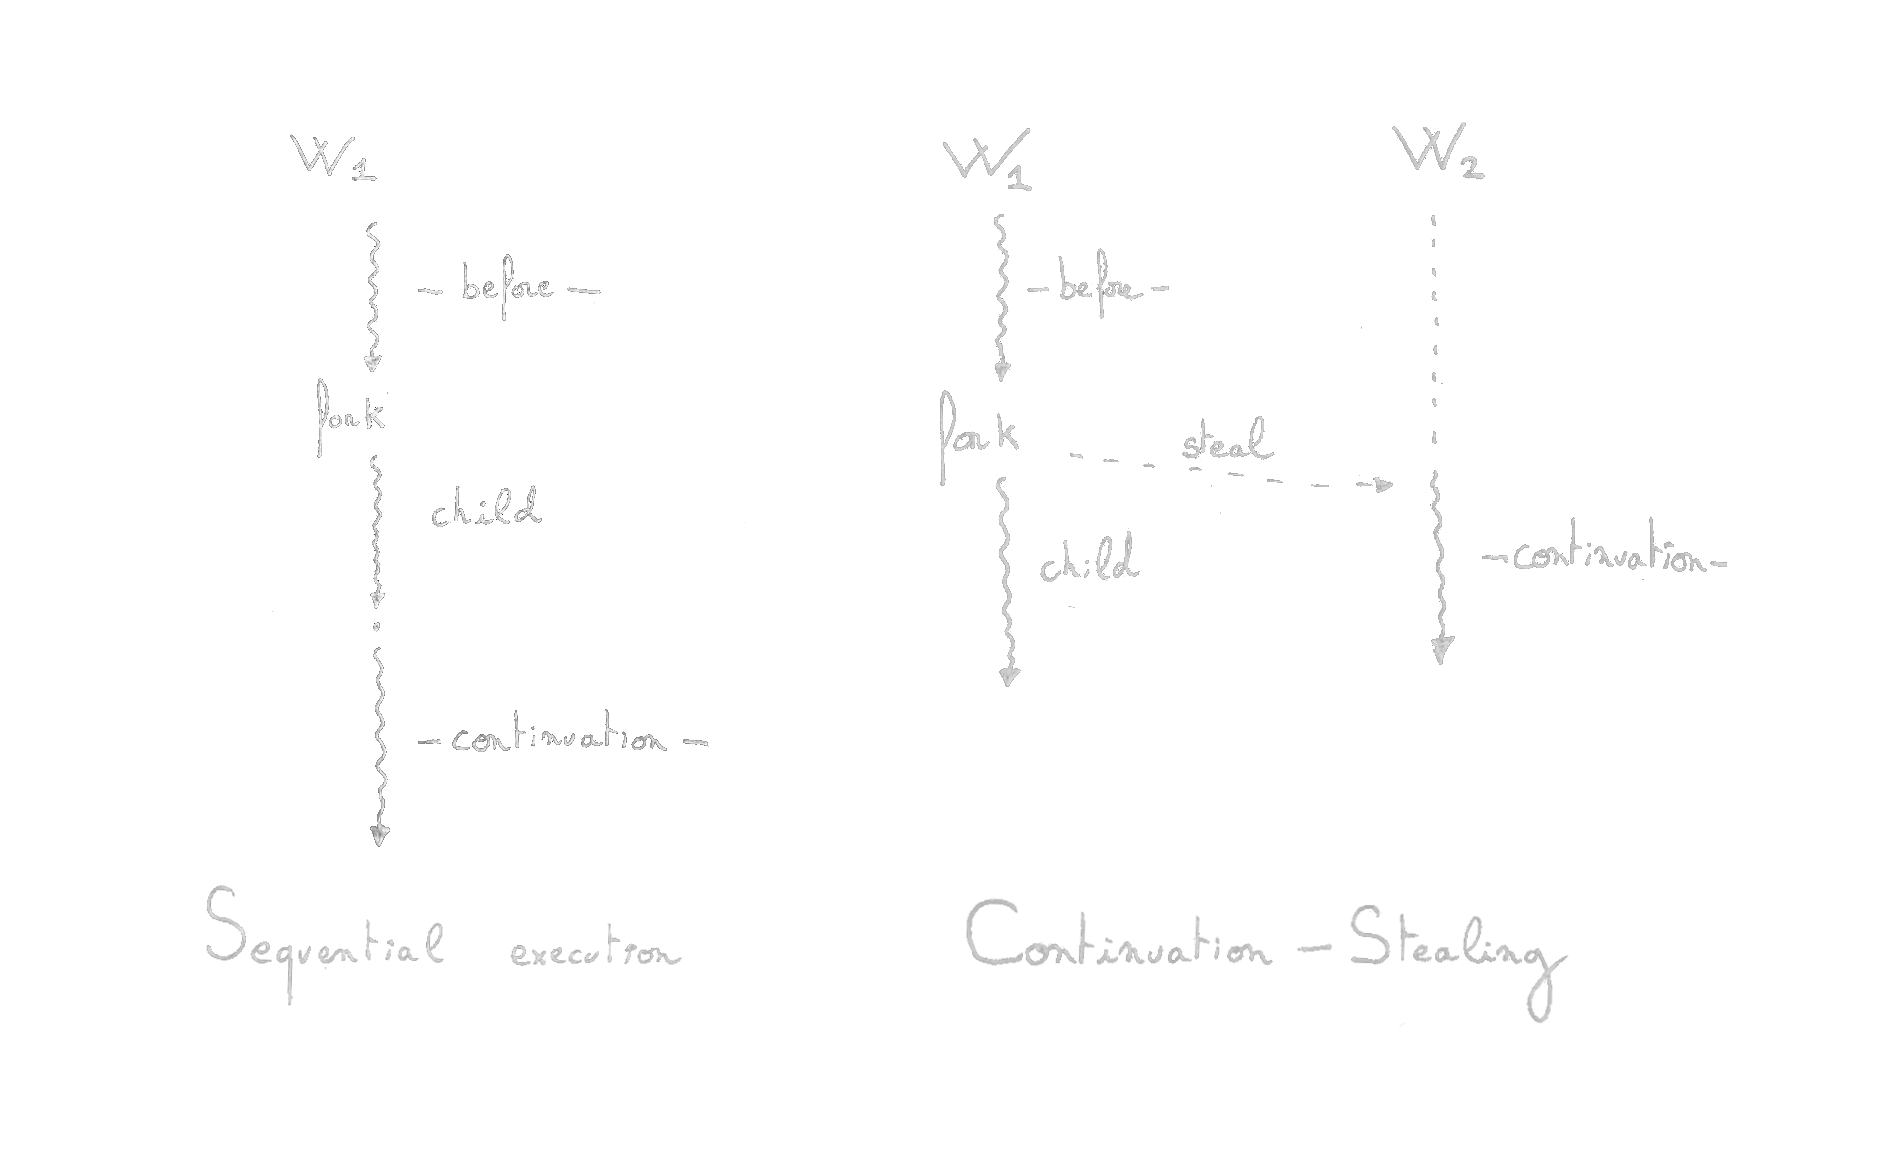 W1
- before -
fork
child
- continuation -
Sequential execution
W1
W2
- before -
fork
steal
child
- continuation -
Continuation - Stealing